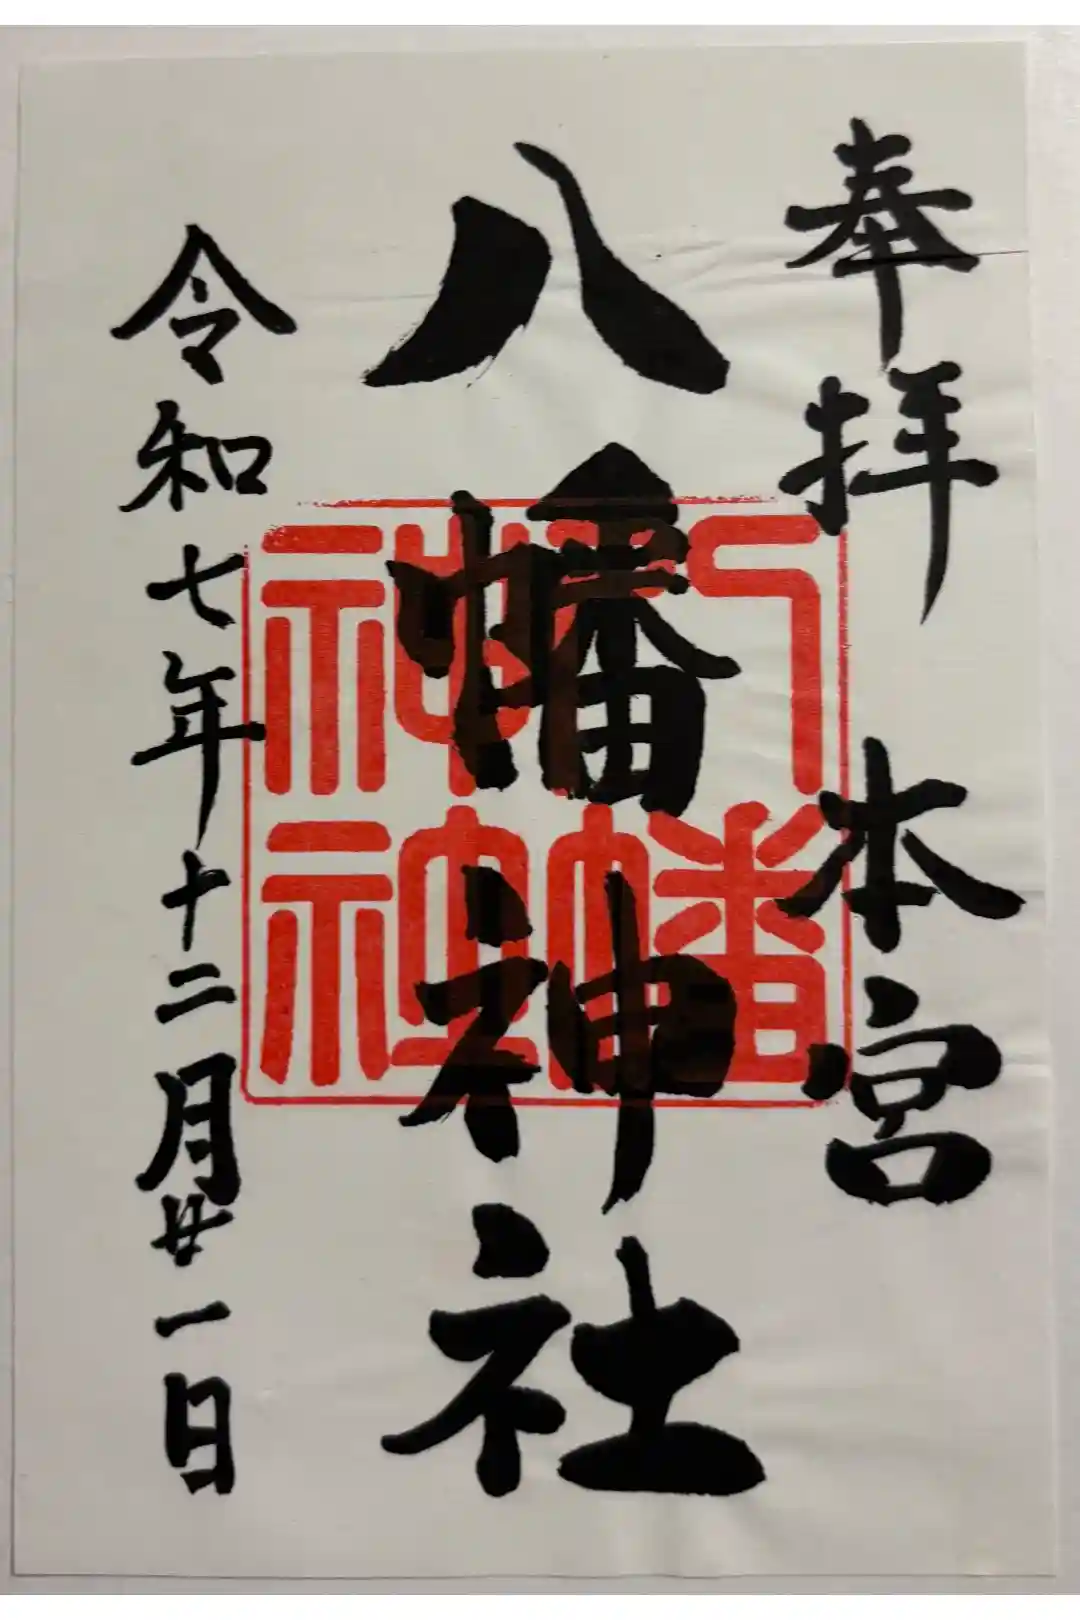 奉拝 本宮
八幡神社
八幡神社
令和七年十二月廿一日